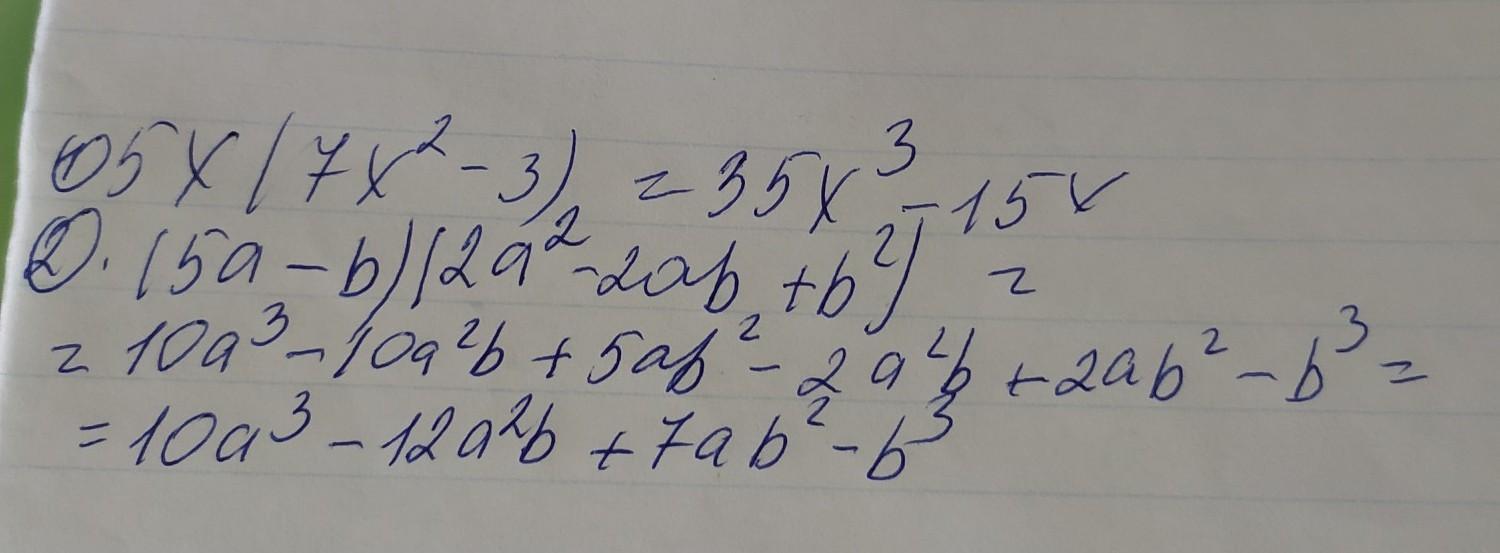 ① 5x(7x² - 3) = 35x³ - 15x
②. (5a - b)(2a² - 2ab + b²) =
= 10a³ - 10a²b + 5ab² - 2a²b + 2ab² - b³ =
= 10a³ - 12a²b + 7ab² - b³